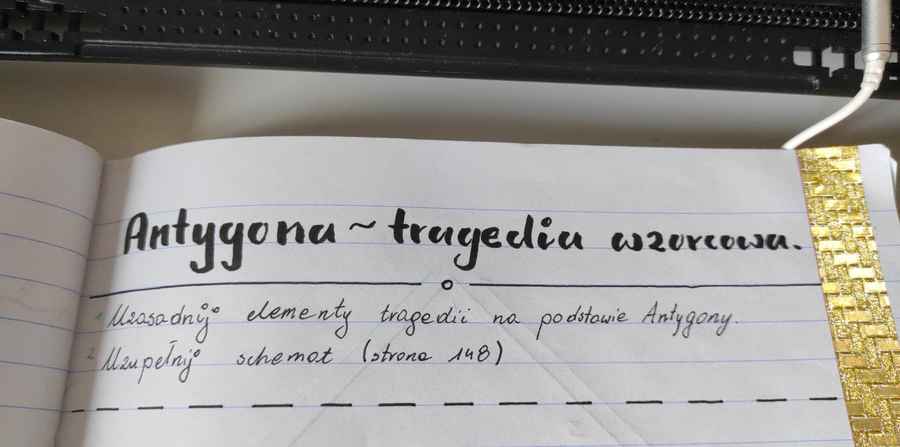 Antygona ~ tragedia wzorcowa.
1 Uzasadnij: elementy tragedii na podstawie Antygony.
2 Uzupełnij: schemat (strona 148)